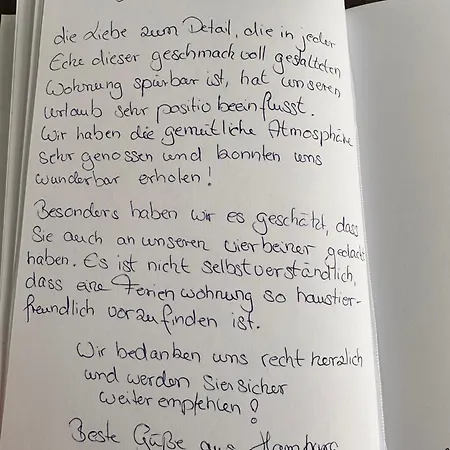 die Liebe zum Detail, die in jeder
Ecke dieser geschmackvoll gestalteten
Wohnung spürbar ist, hat unseren
Urlaub sehr positiv beeinflusst.
Wir haben die gemütliche Atmosphäre
sehr genossen und konnten uns
wunderbar erholen!
Besonders haben wir es geschätzt, dass
Sie auch an unseren Vierbeiner gedacht
haben. Es ist nicht selbstverständlich,
dass eine Ferienwohnung so haustier-
freundlich vorzufinden ist.
Wir bedanken uns recht herzlich
und werden Sie sicher
weiterempfehlen!
Beste Grüße aus Hamburg